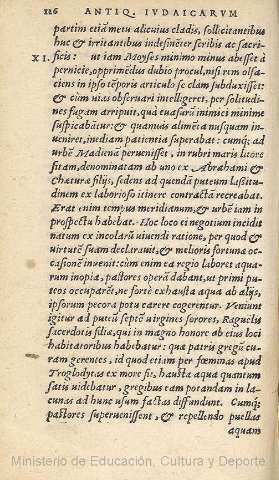 126 ANTIQ. IVDAICARVM
partim etiã metu alicuius cladis, sollicitantibus
huc & irritantibus indesinẽter scribis ac sacri-
XI. ficis: ut iam Moyses minimo minus abesset à
pernicie, opprimẽdus dubio procul, nisi rem olfa-
ciens in ipso tẽporis articulo se clam subduxisset:
& cùm uias obseruari intelligeret, per solitudi-
nes fugam arripuit, quà euasurũ inimici minime
suspicabãtur: & quamuis alimẽta nusquam in-
ueniret, inediam patientia superabat: cumq; ad
urbẽ Madienẽ peruenisset, in rubri maris litore
sitam, denominatam ab uno ex Abrahami &
Chæturæ filijs, sedens ad quendã puteum lassitu-
dinem ex laborioso itinere contractã recreabat.
Erat enim tempus meridianum, & urbẽ iam in
prospectu habebat. Hoc loco ei negotium incidit
natum ex incolarũ uiuendi ratione, per quod &
virtutẽ suam declarauit, & melioris fortunæ oc-
casionẽ inuenit: cùm enim ea regio labores aqua-
rum inopia, pastores operã dabant, ut primi pu-
teos occuparẽt, ne fortè exhausta aqua ab alijs,
ipsorum pecora potu carere cogerentur. Veniunt
igitur ad puteũ septẽ uirgines sorores, Raguelis
sacerdotis filiæ, qui in magno honore ab eius loci
habitatoribus habebatur: quæ patris gregũ cu-
ram gerentes, id quod etiam per fœminas apud
Troglodytas ex more fit, hausta aqua quantum
satis uidebatur, gregibus eam potandam in la-
cunas ad hunc usum factas diffundunt. Cumq;
pastores superuenissent, & repellendo puellas
aquam
Ministerio de Educación, Cultura y Deporte